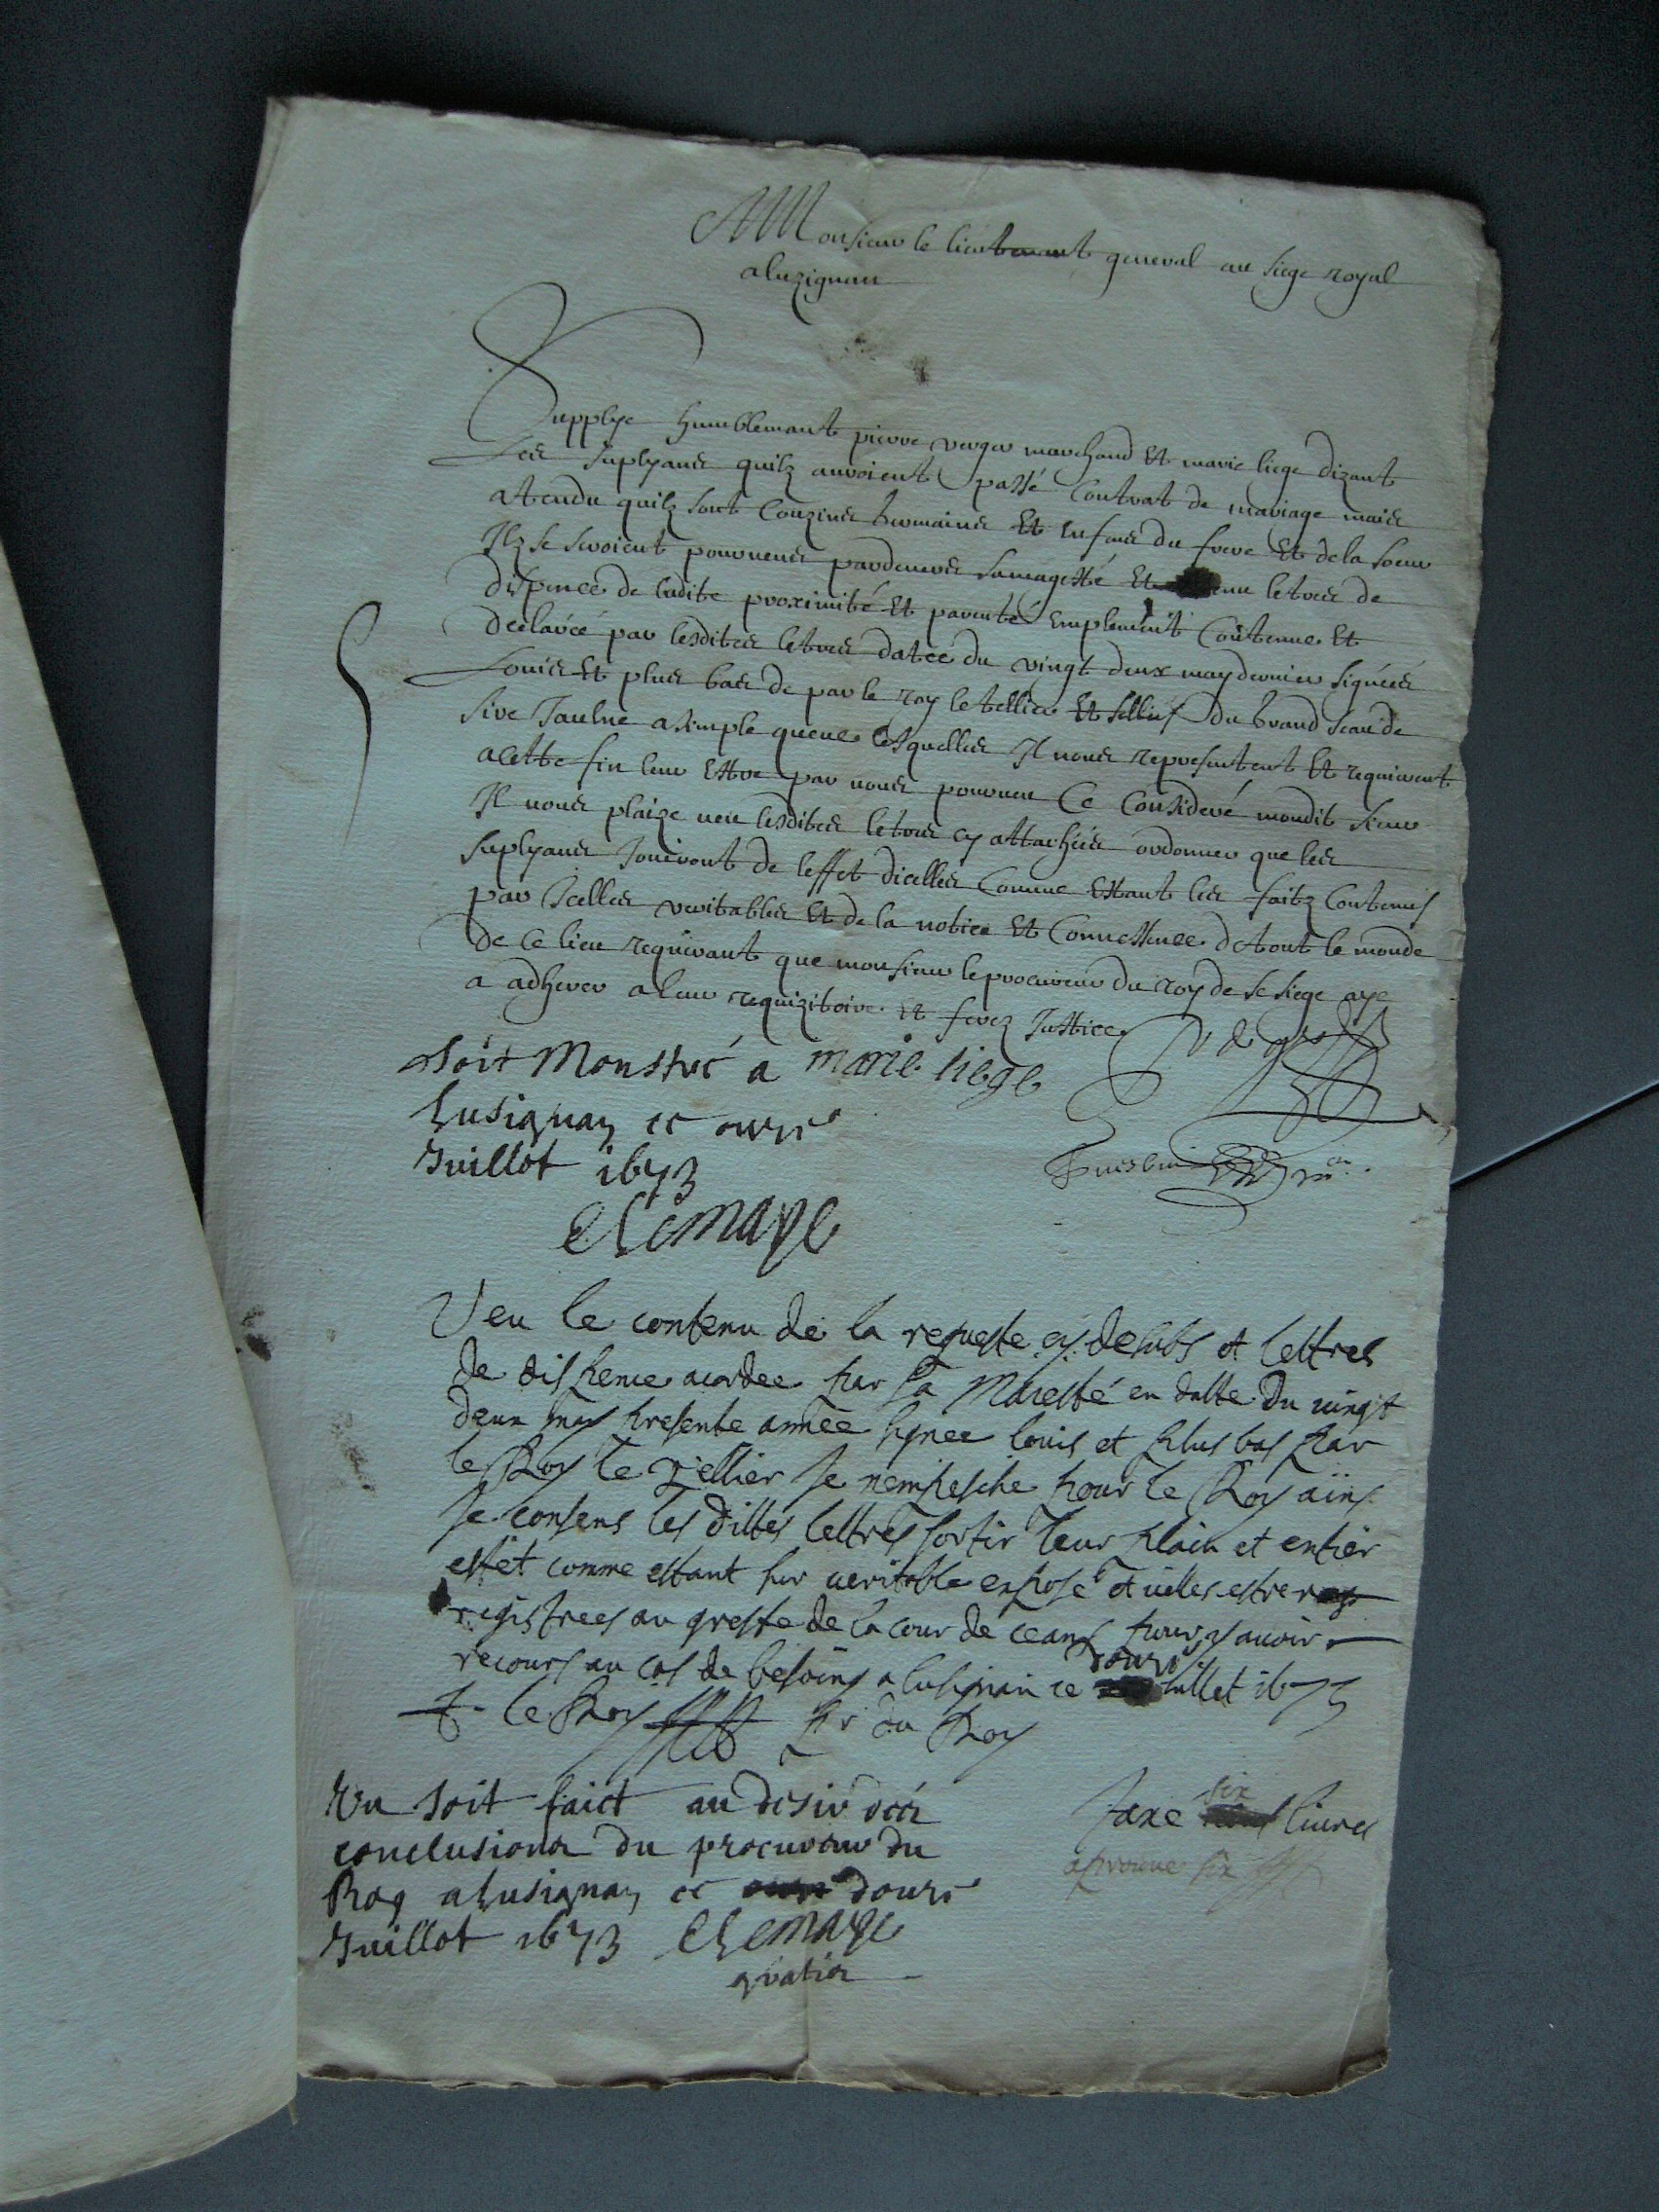 A Monsieur le lieutenant general au siege royal
a luzignan
Supplye humblemant pierre verger marchand Et marie liege dizant
Les suplyans quilz auroient passé Contrat de mariage mais
atendu quilz sont Couzins germains Et Enfans du frere Et de la soeur
Ilz se seroient pourveus pardevers sa magesté Et enu letres de
dispence de ladite proximité Et parenté Emplement Contenue Et
declarée par lesdites letres datée du vingt deux may dernier signées
Louis Et plus bas de par le roy le tellier Et sellées du Grand sceau de
sire Jaulne a simple queue lesquelles Il nous representent Et requierent
a cette fin leur Estre par nous pourveu Ce Consideré mondit sieur
Il nous plaize veu lesdites letres cy attachées ordonner que les
suplyans Jouiront de leffet dicelles Comme Estant les faitz Contenus
par Icelles veritables Et de la notice Et Connessence de tout le monde
de Ce lieu requerant que monsieur le procureur du roy de se siege aye
a adherer a leur requizitoire Et ferez Justice
Soit Monstré a marie liege
Lusignan ce onze
Juillet 1673
Veu le contenu de la requeste cy dessus et lettres
de dispence acordee par sa Maiesté en datte du vingt
deux may presente année signee louis et plus bas par
le Roy le Tellier Je nempesche pour le Roy ains
Je consens les dittes lettres sortir leur plain et entier
effet comme estant sur veritable exposé et icelles estre
registrees au greffe de la cour de ceans pour y avoir
recours au cas de besoing a lusignan ce douze Juillet 1673
le Roy pr du Roy
Veu soit faict au desir des
conclusions du procureur du
Roy a Lusignan ce douze
Juillet 1673
gratis
Taxe six livres
aprouve six